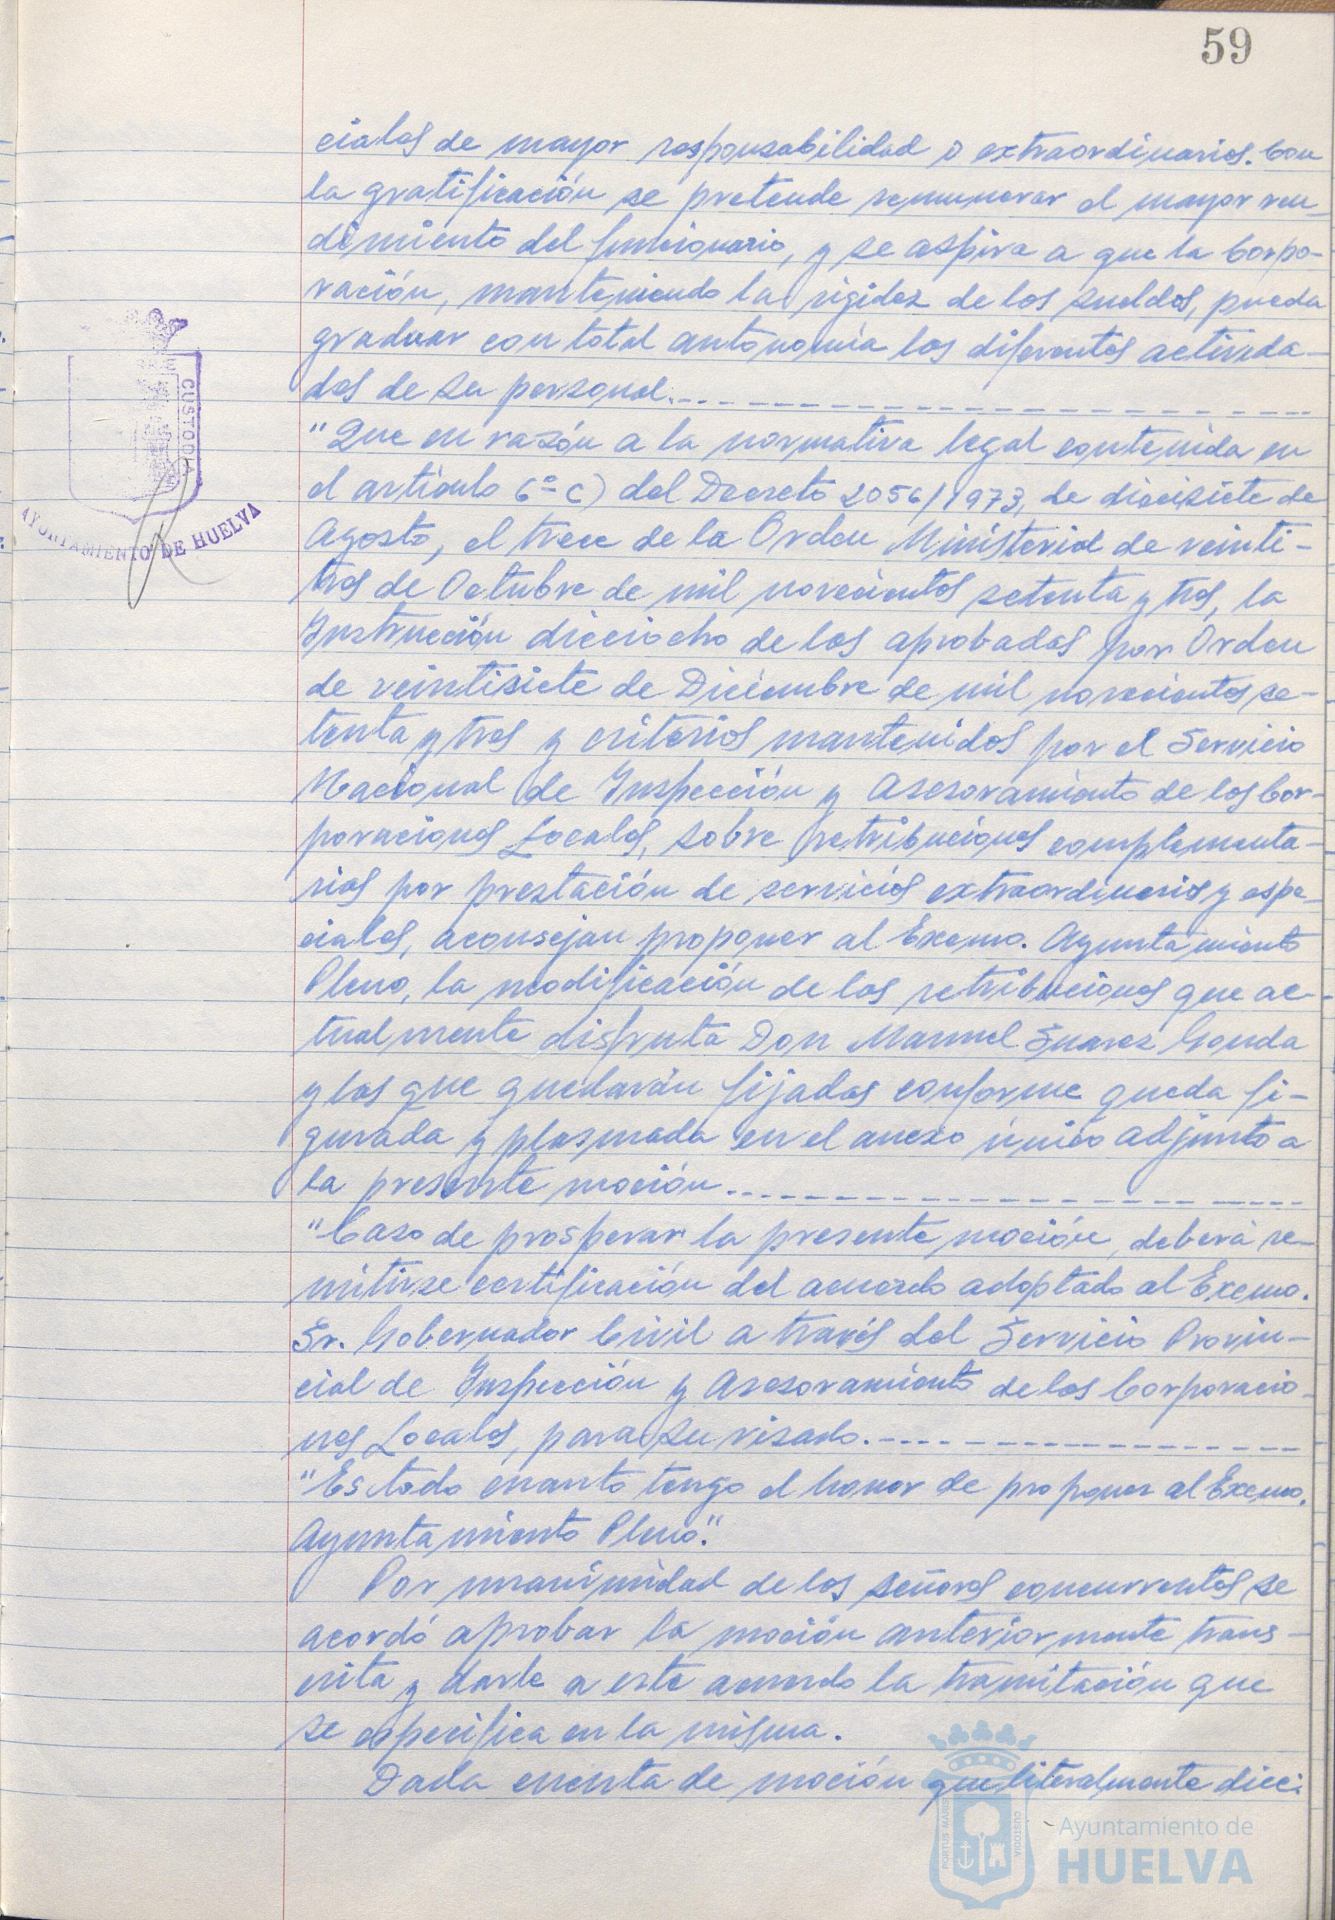 59
ciales de mayor responsabilidad o extraordinarios. Con
la gratificación se pretende remunerar el mayor ren-
dimiento del funcionario, y se aspira a que la Corpo-
ración, manteniendo la rigidez de los sueldos, pueda
graduar con total autonomía las diferentes activida-
des de su personal.
"Que en razón a la normativa legal contenida en
el artículo 6º c) del Decreto 2056/1973, de diecisiete de
Agosto, el trece de la Orden Ministerial de veinti-
tres de Octubre de mil novecientos setenta y tres, la
Instrucción dieciocho de las aprobadas por Orden
de veintisiete de Diciembre de mil novecientos se-
tenta y tres y criterios mantenidos por el Servicio
Nacional de Inspección y Asesoramiento de las Cor-
poraciones Locales, sobre retribuciones complementa-
rias por prestación de servicios extraordinarios y espe-
ciales, aconsejan proponer al Excmo. Ayuntamiento
Pleno, la modificación de las retribuciones que ac-
tualmente disfruta Don Manuel Suarez
y las que quedarán fijadas conforme queda fi-
gurada y plasmada en el anexo único adjunto a
la presente moción.
"Caso de prosperar la presente moción, deberá re-
mitirse certificación del acuerdo adoptado al Excmo.
Sr. Gobernador Civil a través del Servicio Provin-
cial de Inspección y Asesoramiento de las Corporacio-
nes Locales, para su visado.
"Es todo cuanto tengo el honor de proponer al Excmo.
Ayuntamiento Pleno".
Por unanimidad de los señores concurrentes se
acordó aprobar la moción anteriormente trans-
crita y darle a este acuerdo la tramitación que
se especifica en la misma.
Dada cuenta de moción que literalmente dice:
CUSTODIA
AYUNTAMIENTO DE HUELVA
PORTUS MARIS
CUSTODIA
Ayuntamiento de
HUELVA